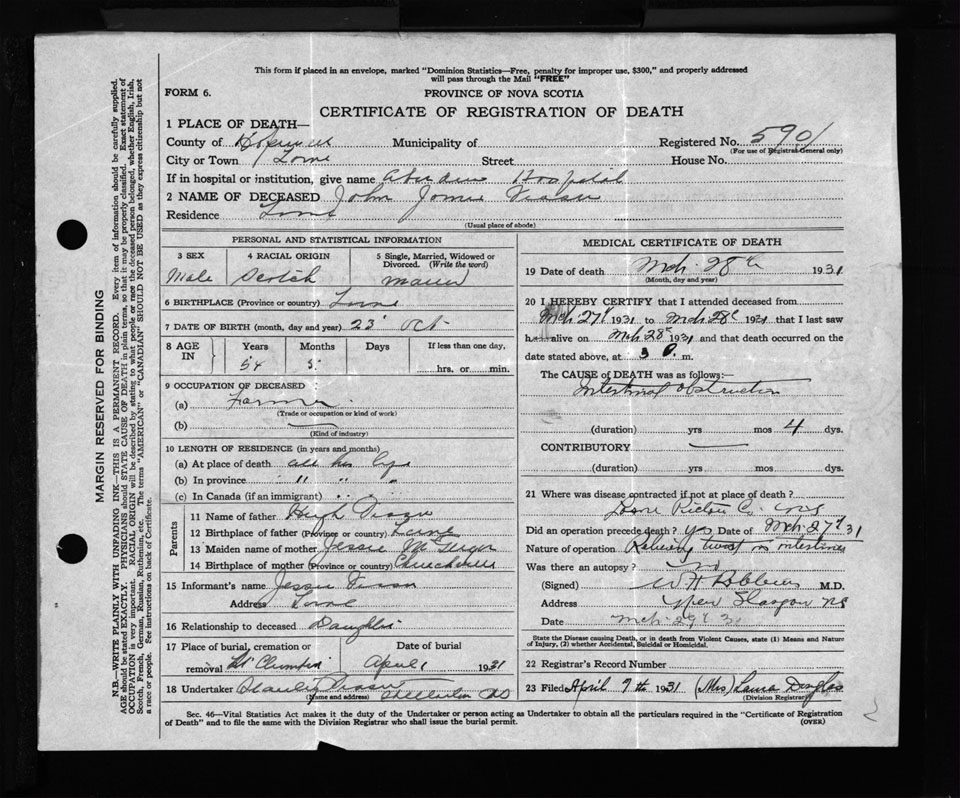 This form if placed in an envelope, marked "Dominion Statistics—Free, penalty for improper use, $300," and properly addressed
will pass through the Mail "FREE"
FORM 6.
PROVINCE OF NOVA SCOTIA
CERTIFICATE OF REGISTRATION OF DEATH
1 PLACE OF DEATH—
County of Municipality of Registered No. 5901
(For use of Registrar-General only)
City or Town Lorne Street House No.
If in hospital or institution, give name Aberdeen Hospital
2 NAME OF DECEASED John James
Residence Lorne
(Usual place of abode)
PERSONAL AND STATISTICAL INFORMATION
3 SEX 4 RACIAL ORIGIN 5 Single, Married, Widowed or Divorced. (Write the word)
Male Scotch
6 BIRTHPLACE (Province or country) Lorne
7 DATE OF BIRTH (month, day and year) 23 Oct
8 AGE IN Years Months Days If less than one day,
54 5 hrs. or min.
9 OCCUPATION OF DECEASED:
(a) Farmer
(Trade or occupation or kind of work)
(b)
(Kind of industry)
10 LENGTH OF RESIDENCE (in years and months)
(a) At place of death all his life
(b) In province " " "
(c) In Canada (if an immigrant) " "
Parents
11 Name of father Hugh
12 Birthplace of father (Province or country) Lorne
13 Maiden name of mother Jessie
14 Birthplace of mother (Province or country)
15 Informant's name Jessie
Address Lorne
16 Relationship to deceased Daughter
17 Place of burial, cremation or removal Date of burial
April 1 1931
18 Undertaker Stanley
(Name and address)
MEDICAL CERTIFICATE OF DEATH
19 Date of death Mch. 28th 1931
(Month, day and year)
20 I HEREBY CERTIFY that I attended deceased from
Mch 27 1931 to Mch 28 1931 that I last saw
h alive on Mch 28 1931 and that death occurred on the
date stated above, at 3 P. m.
The CAUSE OF DEATH was as follows:—
Intestinal Obstruction
(duration) yrs mos 4 dys.
CONTRIBUTORY
(duration) yrs mos dys.
21 Where was disease contracted if not at place of death?
Pictou C. NS
Did an operation precede death? yes Date of Mch. 27 31
Nature of operation Relieving twist in intestines
Was there an autopsy? no
(Signed) W H Robbins M.D.
Address New Glasgow NS
Date Mch 29 31
State the Disease causing Death, or in death from Violent Causes, state (1) Means and Nature
of Injury, (2) whether Accidental, Suicidal or Homicidal.
22 Registrar's Record Number
23 Filed April 9th 1931 (Mrs) Laura Douglas
(Division Registrar)
Sec. 46—Vital Statistics Act makes it the duty of the Undertaker or person acting as Undertaker to obtain all the particulars required in the "Certificate of Registration
of Death" and to file the same with the Division Registrar who shall issue the burial permit.
(OVER)
MARGIN RESERVED FOR BINDING
N.B.—WRITE PLAINLY WITH UNFADING INK—THIS IS A PERMANENT RECORD. Every item of information should be carefully supplied.
AGE should be stated EXACTLY. PHYSICIANS should STATE CAUSE OF DEATH in plain terms, so that it may be properly classified. Exact statement of
OCCUPATION is very important. RACIAL ORIGIN will be described by stating to what people or race the deceased person belonged, whether English, Irish,
Scotch, French, German, Russian, Ruthenian, etc. The terms "AMERICAN" or "CANADIAN" SHOULD NOT BE USED as they express citizenship but not
a race or people. See instructions on back of Certificate.